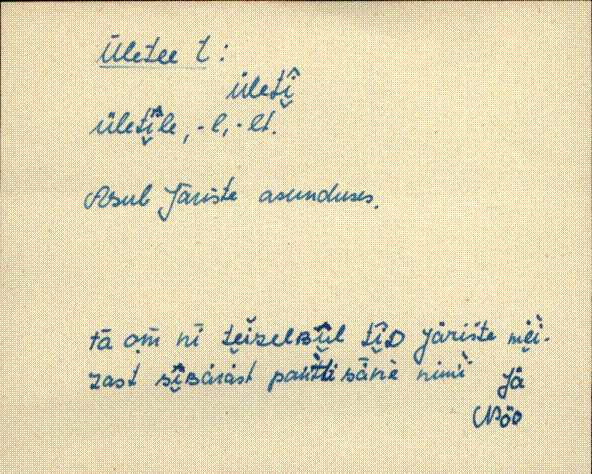 Ületee t :
ületî̬
ületî̬le, -l, -lt.
Asub Järiste asunduses.
tä om̄ nī tĕizelʙū̬l tî̬ᴅ järište mĕì-
zast sî̬ʙäräst pantti säne nimi Jä
Nõo